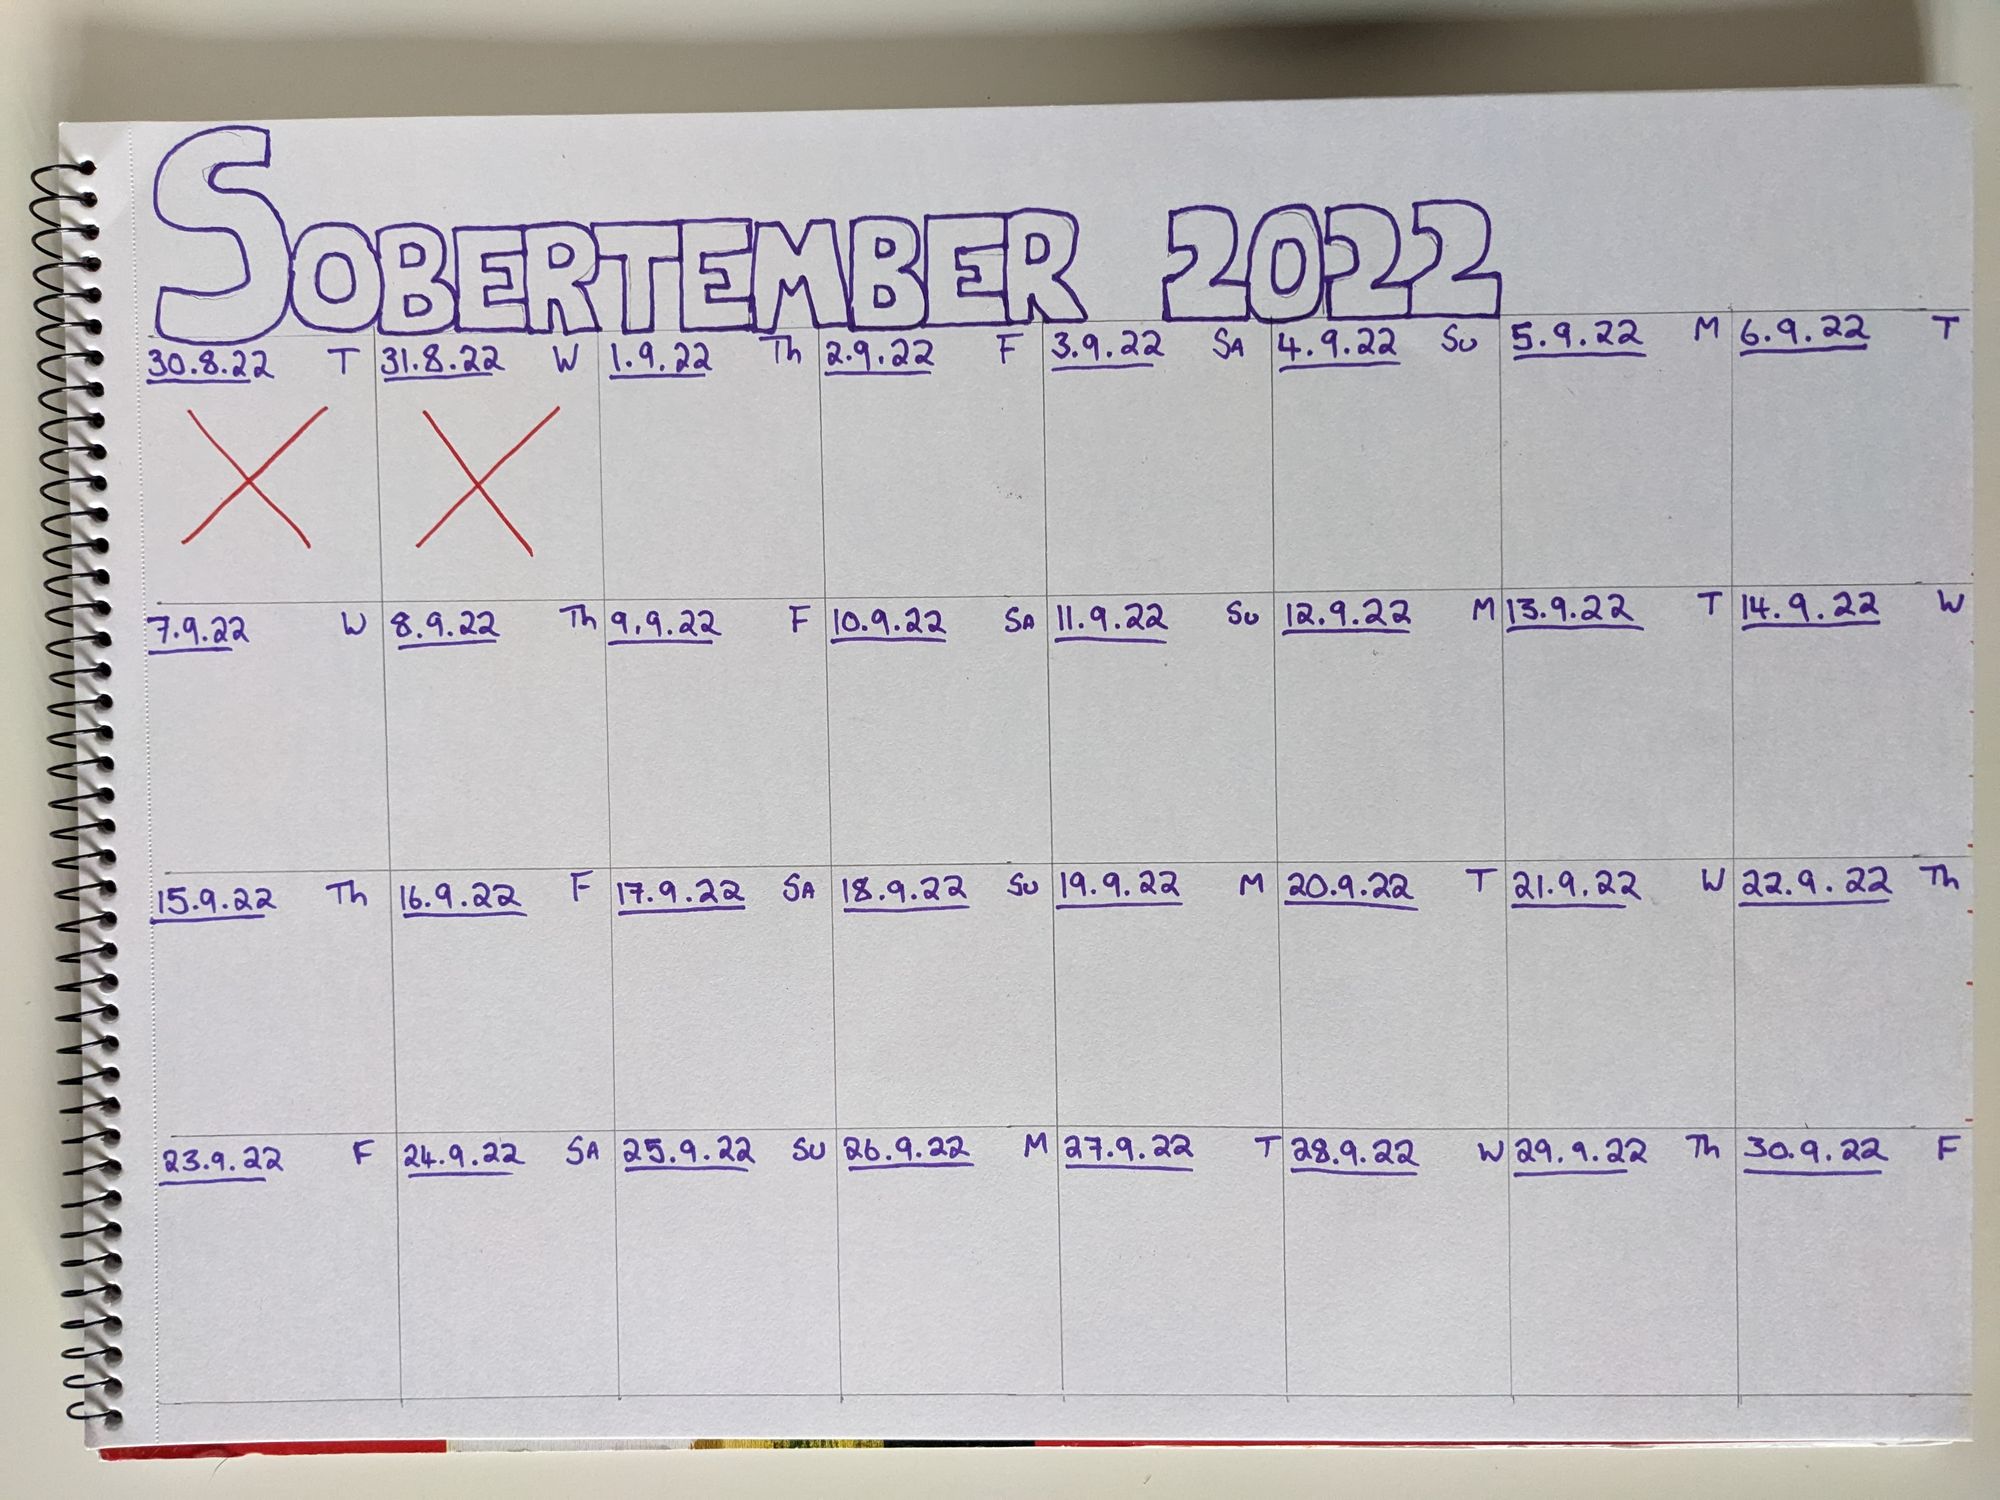 SOBERTEMBER 2022
30.8.22 T 31.8.22 W 1.9.22 Th 2.9.22 F 3.9.22 SA 4.9.22 SU 5.9.22 M 6.9.22 T
7.9.22 W 8.9.22 Th 9.9.22 F 10.9.22 SA 11.9.22 SU 12.9.22 M 13.9.22 T 14.9.22 W
15.9.22 Th 16.9.22 F 17.9.22 SA 18.9.22 SU 19.9.22 M 20.9.22 T 21.9.22 W 22.9.22 Th
23.9.22 F 24.9.22 SA 25.9.22 SU 26.9.22 M 27.9.22 T 28.9.22 W 29.9.22 Th 30.9.22 F